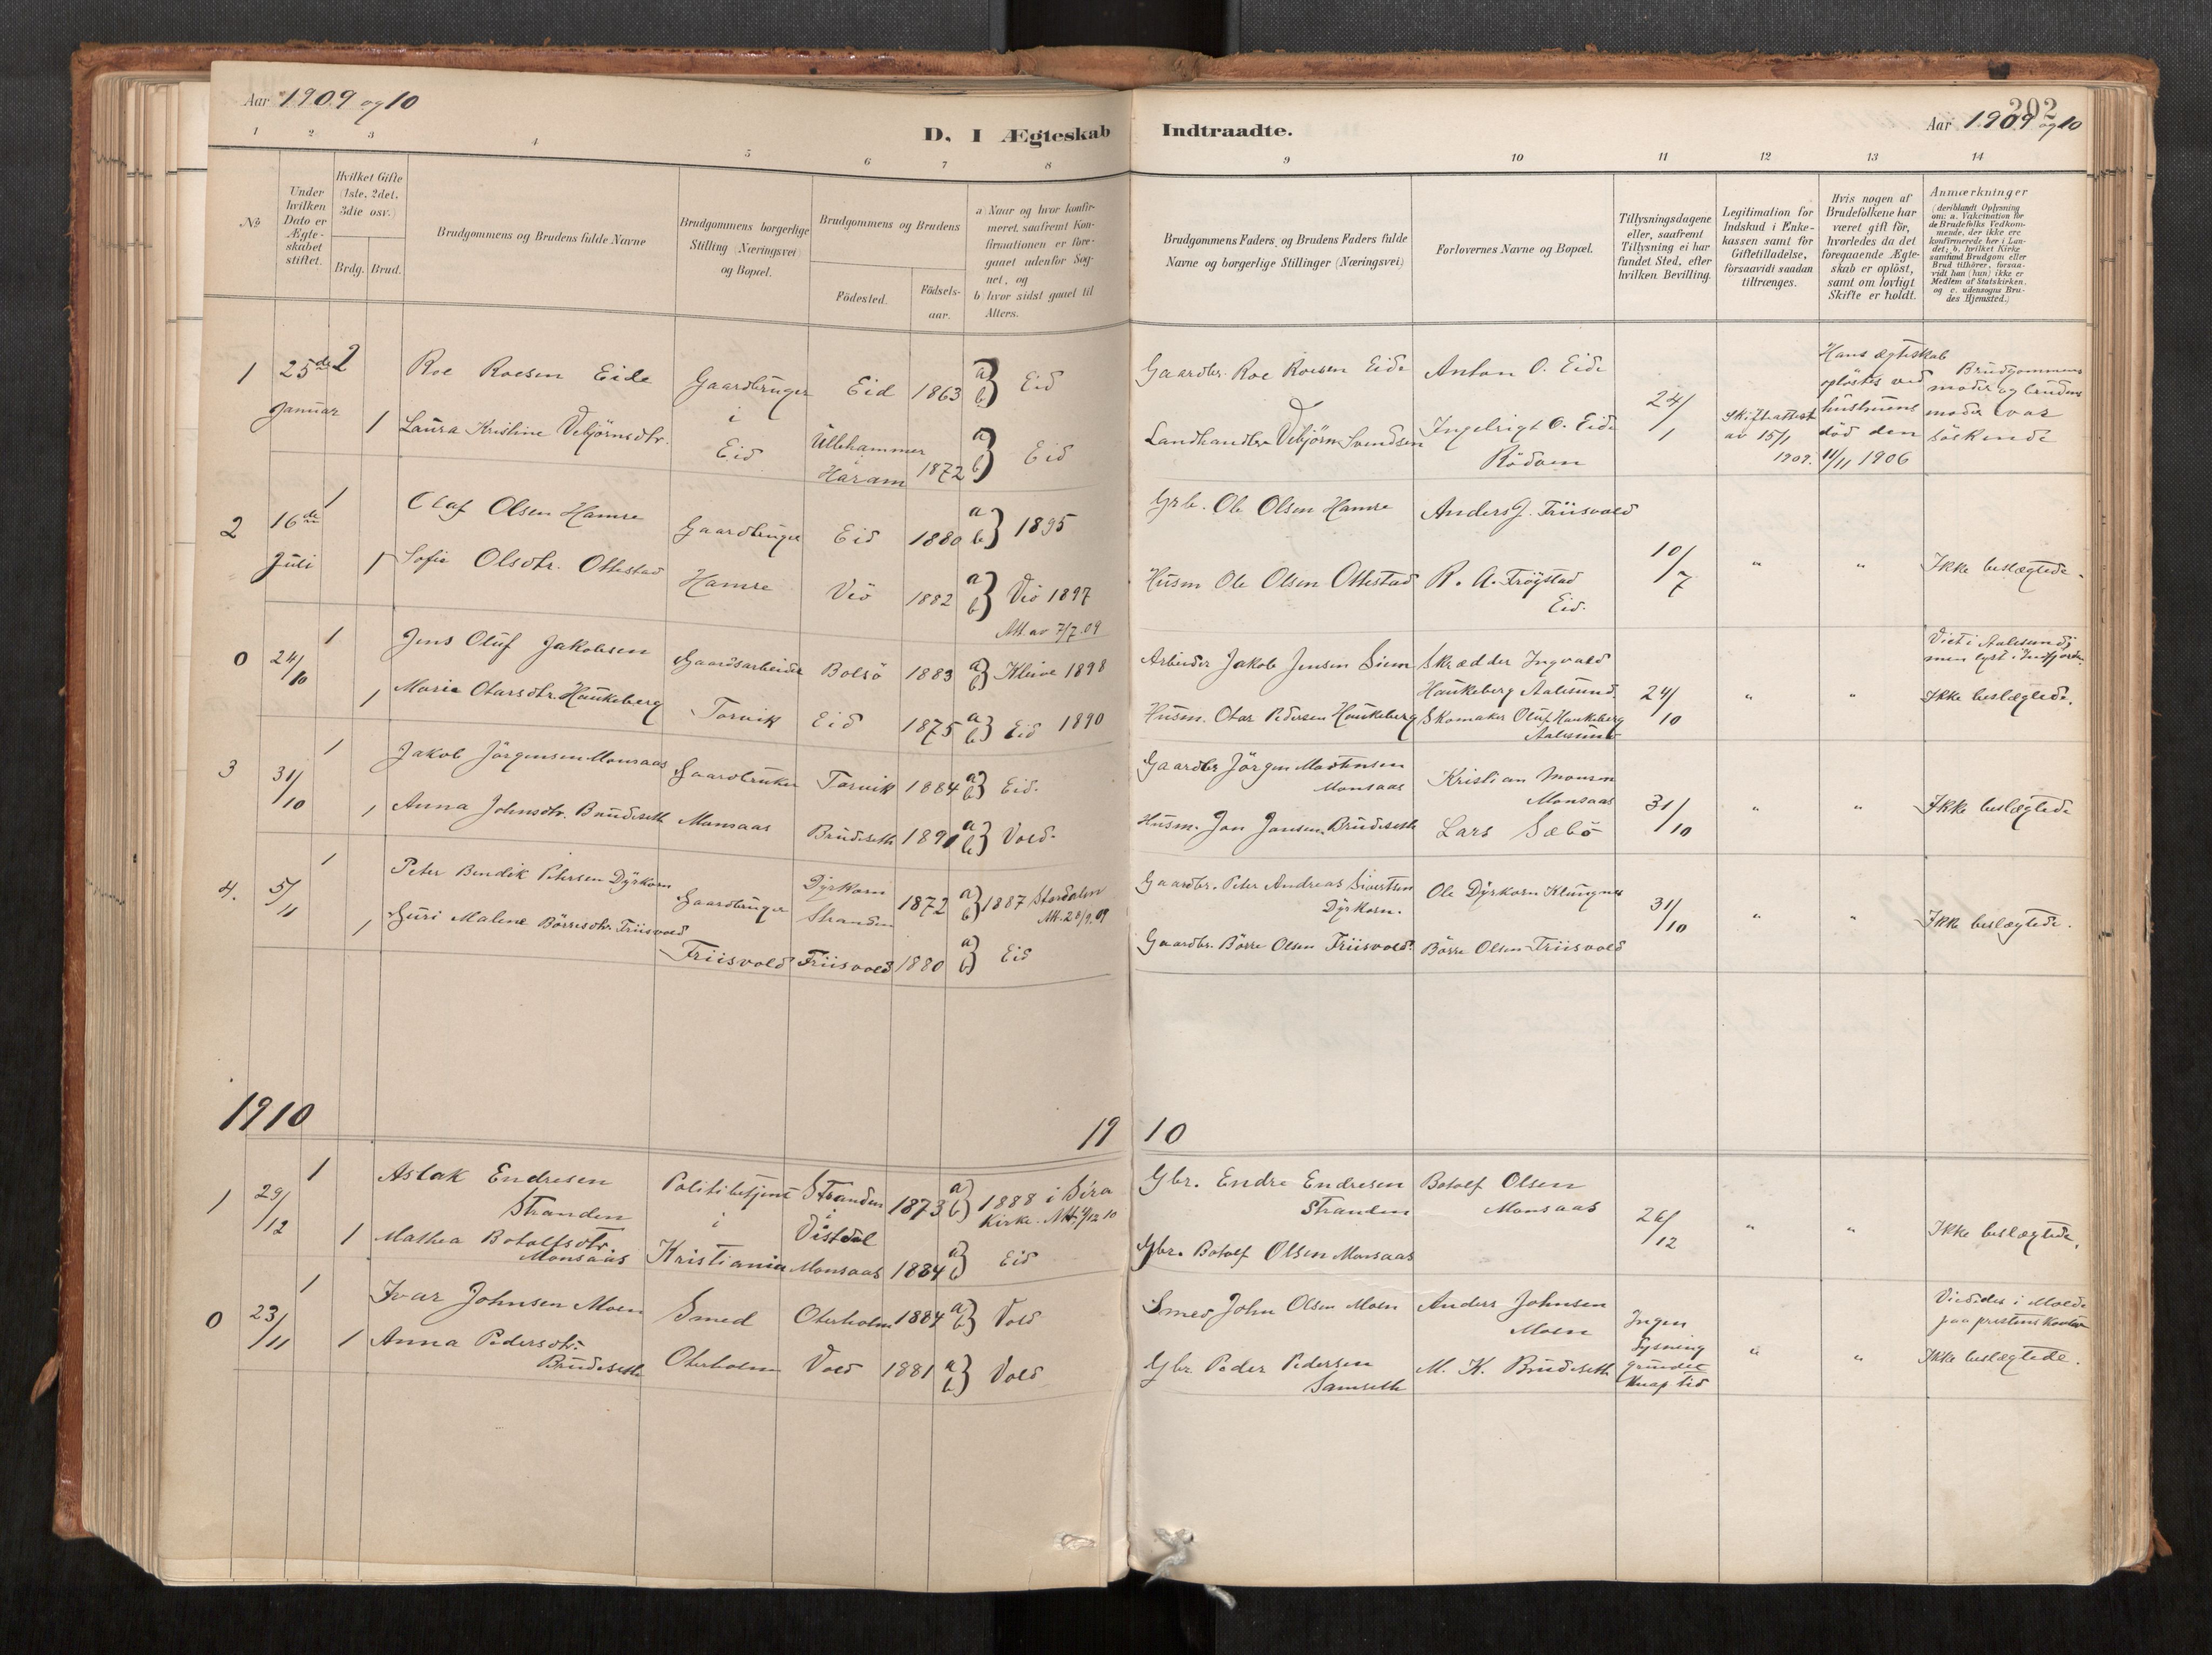 Aar 1909 og 10
D. I Ægteskab Indtraadte.
202
Aar 1909 og 10
1 2 3 4 5 6 7 8 9 10 11 12 13 14
No
Under
hvilken
Dato er
Ægte-
skabet
stiftet.
Hvilket Gifte
(1ste, 2det,
3die osv.)
Brdg. Brud.
Brudgommens og Brudens fulde Navne
Brudgommens borgerlige
Stilling (Næringsvei)
og Bopæl.
Brudgommens og Brudens
Födested.
Födsels-
aar.
a) Naar og hvor konfir-
meret, saafremt Kon-
firmationen er fore-
gaaet udenfor Sog-
net, og
b) hvor sidst gaaet til
Alters.
Brudgommens Faders og Brudens Faders fulde
Navne og borgerlige Stillinger (Næringsvei)
Forlovernes Navne og Bopæl.
Tillysningsdagene
eller, saafremt
Tillysning ei har
fundet Sted, efter
hvilken Bevilling.
Legitimation for
Indskud i Enke-
kassen samt for
Giftetilladelse,
forsaavidt saadan
tiltrænges.
Hvis nogen af
Brudefolkene har
været gift för,
hvorledes da det
foregaaende Ægte-
skab er oplöst,
samt om lovligt
Skifte er holdt.
Anmærkninger
(deriblandt Oplysning
om: a. Vakcination for
de Brudefolks Vedkom-
mende, der ikke ere
konfirmerede her i Lan-
det; b. hvilket Kirke-
samfund Brudgom eller
Brud tilhörer, forsaa-
vidt han (hun) ikke er
Medlem af Statskirken,
og c. udensogns Bru-
des Hjemsted.)
1 25de Januar 2
Roe Roesen Eide
Gaardbruger
i
Eid
Eid 1863 a b} Eid
Gaardbr. Roe Roesen Eide
Anton O. Eide
24/1
Skifteattest
av 15/1
1909.
Hans ægteskab
opløstes ved
hustruens
död den
11/11 1906
Brudgommens
moder og brudens
moder var
söskende
1 Laura Kristine Vebjörnsdtr.
Ullehammer
i
Haram 1872 a b} Eid
Landhandler Vebjörn Svendsen
Ingebrigt O. Eide
Rödven
2 16de Juli 1
Olaf Olsen Hamre
Gaardbruger
Hamre
Eid 1880 a b} 1895
Grb. Ole Olsen Hamre
Anders J. Friisvold
10/7 " " Ikke beslægtede.
1 Sofie Olsdtr. Ottestad
Veö 1882 a b} Veö 1897
Att. av 7/7.09
Husm Ole Olsen Ottestad
R. A. Frögstad
Eid.
0 24/10 1
Jens Oluf Jakobsen
Gaardsarbeider
Torvik
Bolsö 1883 a b} Kleive 1898
Arbeider Jakob Jensen Siem
Skrædder Ingvald
Haukeberg Aalesund
24/10 " "
Viet i Aalesund;
men lyst i Indfjorden.
Ikke beslægtede.
1 Marie Otarsdtr. Haukeberg
Eid 1875 a b} Eid 1890
Husm. Otar Pedersen Haukeberg
Skomaker Oluf Haukeberg
Aalesund
3 31/10 1
Jakob Jörgensen Monsaas
Gaardbruker
Monsaas
Torvik 1884 a b} Eid.
Gaardbr Jörgen Mortensen
Monsaas
Kristian Monsen
Monsaas
31/10 " " Ikke beslægtede
1 Anna Johnsdtr. Brudeseth
Brudeseth 1890 a b} Vold.
Husm. Jon Jonsen Brudeseth
Lars Sæbö
4. 5/11 1
Peter Bendik Petersen Dyrkorn
Gaardbruger
Friisvold
Dyrkorn
Stranden 1872 a b} 1887 Stordalen
Att. 28/9.09
Gaardbr. Peter Andreas Sivertsen
Dyrkorn.
Ole Dyrkorn Klungnes
31/10 " " Ikke beslægtede.
1 Guri Malene Börresdtr. Friisvold
Friisvold 1880 a b} Eid
Gaardbr. Börre Olsen Friisvold.
Börre Olsen Friisvold
1910 19 10
1 29/12 1
Aslak Endresen
Stranden
Politibetjent
i
Kristiania
Stranden
i
Vistdal
1873 a b} 1888 i Sira
Kirke. Att.
Gbr. Endre Endresen
Stranden
Botolf Olsen
Monsaas
26/12 " " Ikke beslægtede.
1 Mathea Botolfsdtr.
Monsaas
Monsaas 1884 a b} Eid
Gbr. Botolf Olsen Monsaas
0 23/11 1
Ivar Johnsen Moen
Smed
Oterholm
Oterholm 1884 a b} Vold
Smed John Olsen Moen
Anders Johnsen
Moen
Ingen
lysning
grundet
knap tid
" "
Viededes i Molde
paa prestens kontor
Ikke beslægtede.
1 Anna Pedersdtr.
Brudeseth
Vold 1881 a b} Vold
Gbr Peder Pedersen
Samseth
M. K. Brudeseth